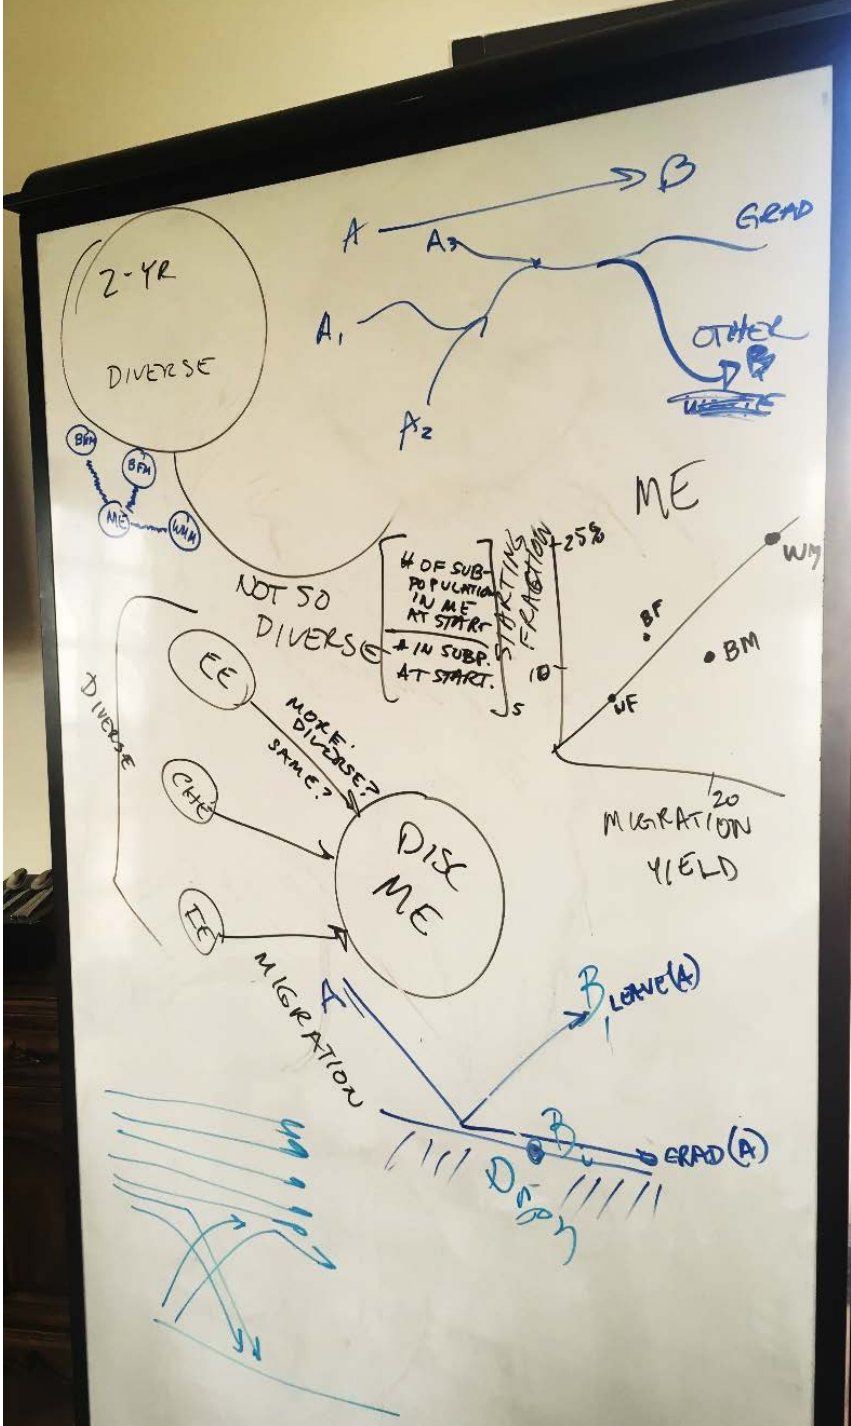 A → B
GRAD
A3
A1
A2
OTHER
B
2-YR
DIVERSE
BMM
BFM
ME
WMM
NOT SO
DIVERSE
# OF SUB-
POPULATION
IN ME
AT START
# IN SUBP.
AT START.
STARTING
FRACTION
ME
25%
10
5
WM
BF
BM
WF
20
MIGRATION
YIELD
DIVERSE
EE
CHE
IE
MORE
DIVERSE?
SAME?
DISC
ME
MIGRATION
A
B, LEAVE(A)
B
GRAD(A)